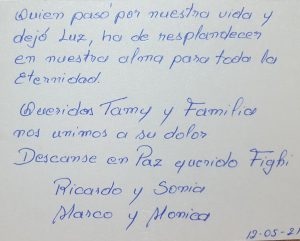 Quien pasó por nuestra vida y
dejó Luz, ha de resplandecer
en nuestra alma para toda la
Eternidad.
Queridos Tamy y Familia
nos unimos a su dolor
Descanse en Paz querido Fighi
Ricardo y Sonia
Marco y Monica
12-05-21